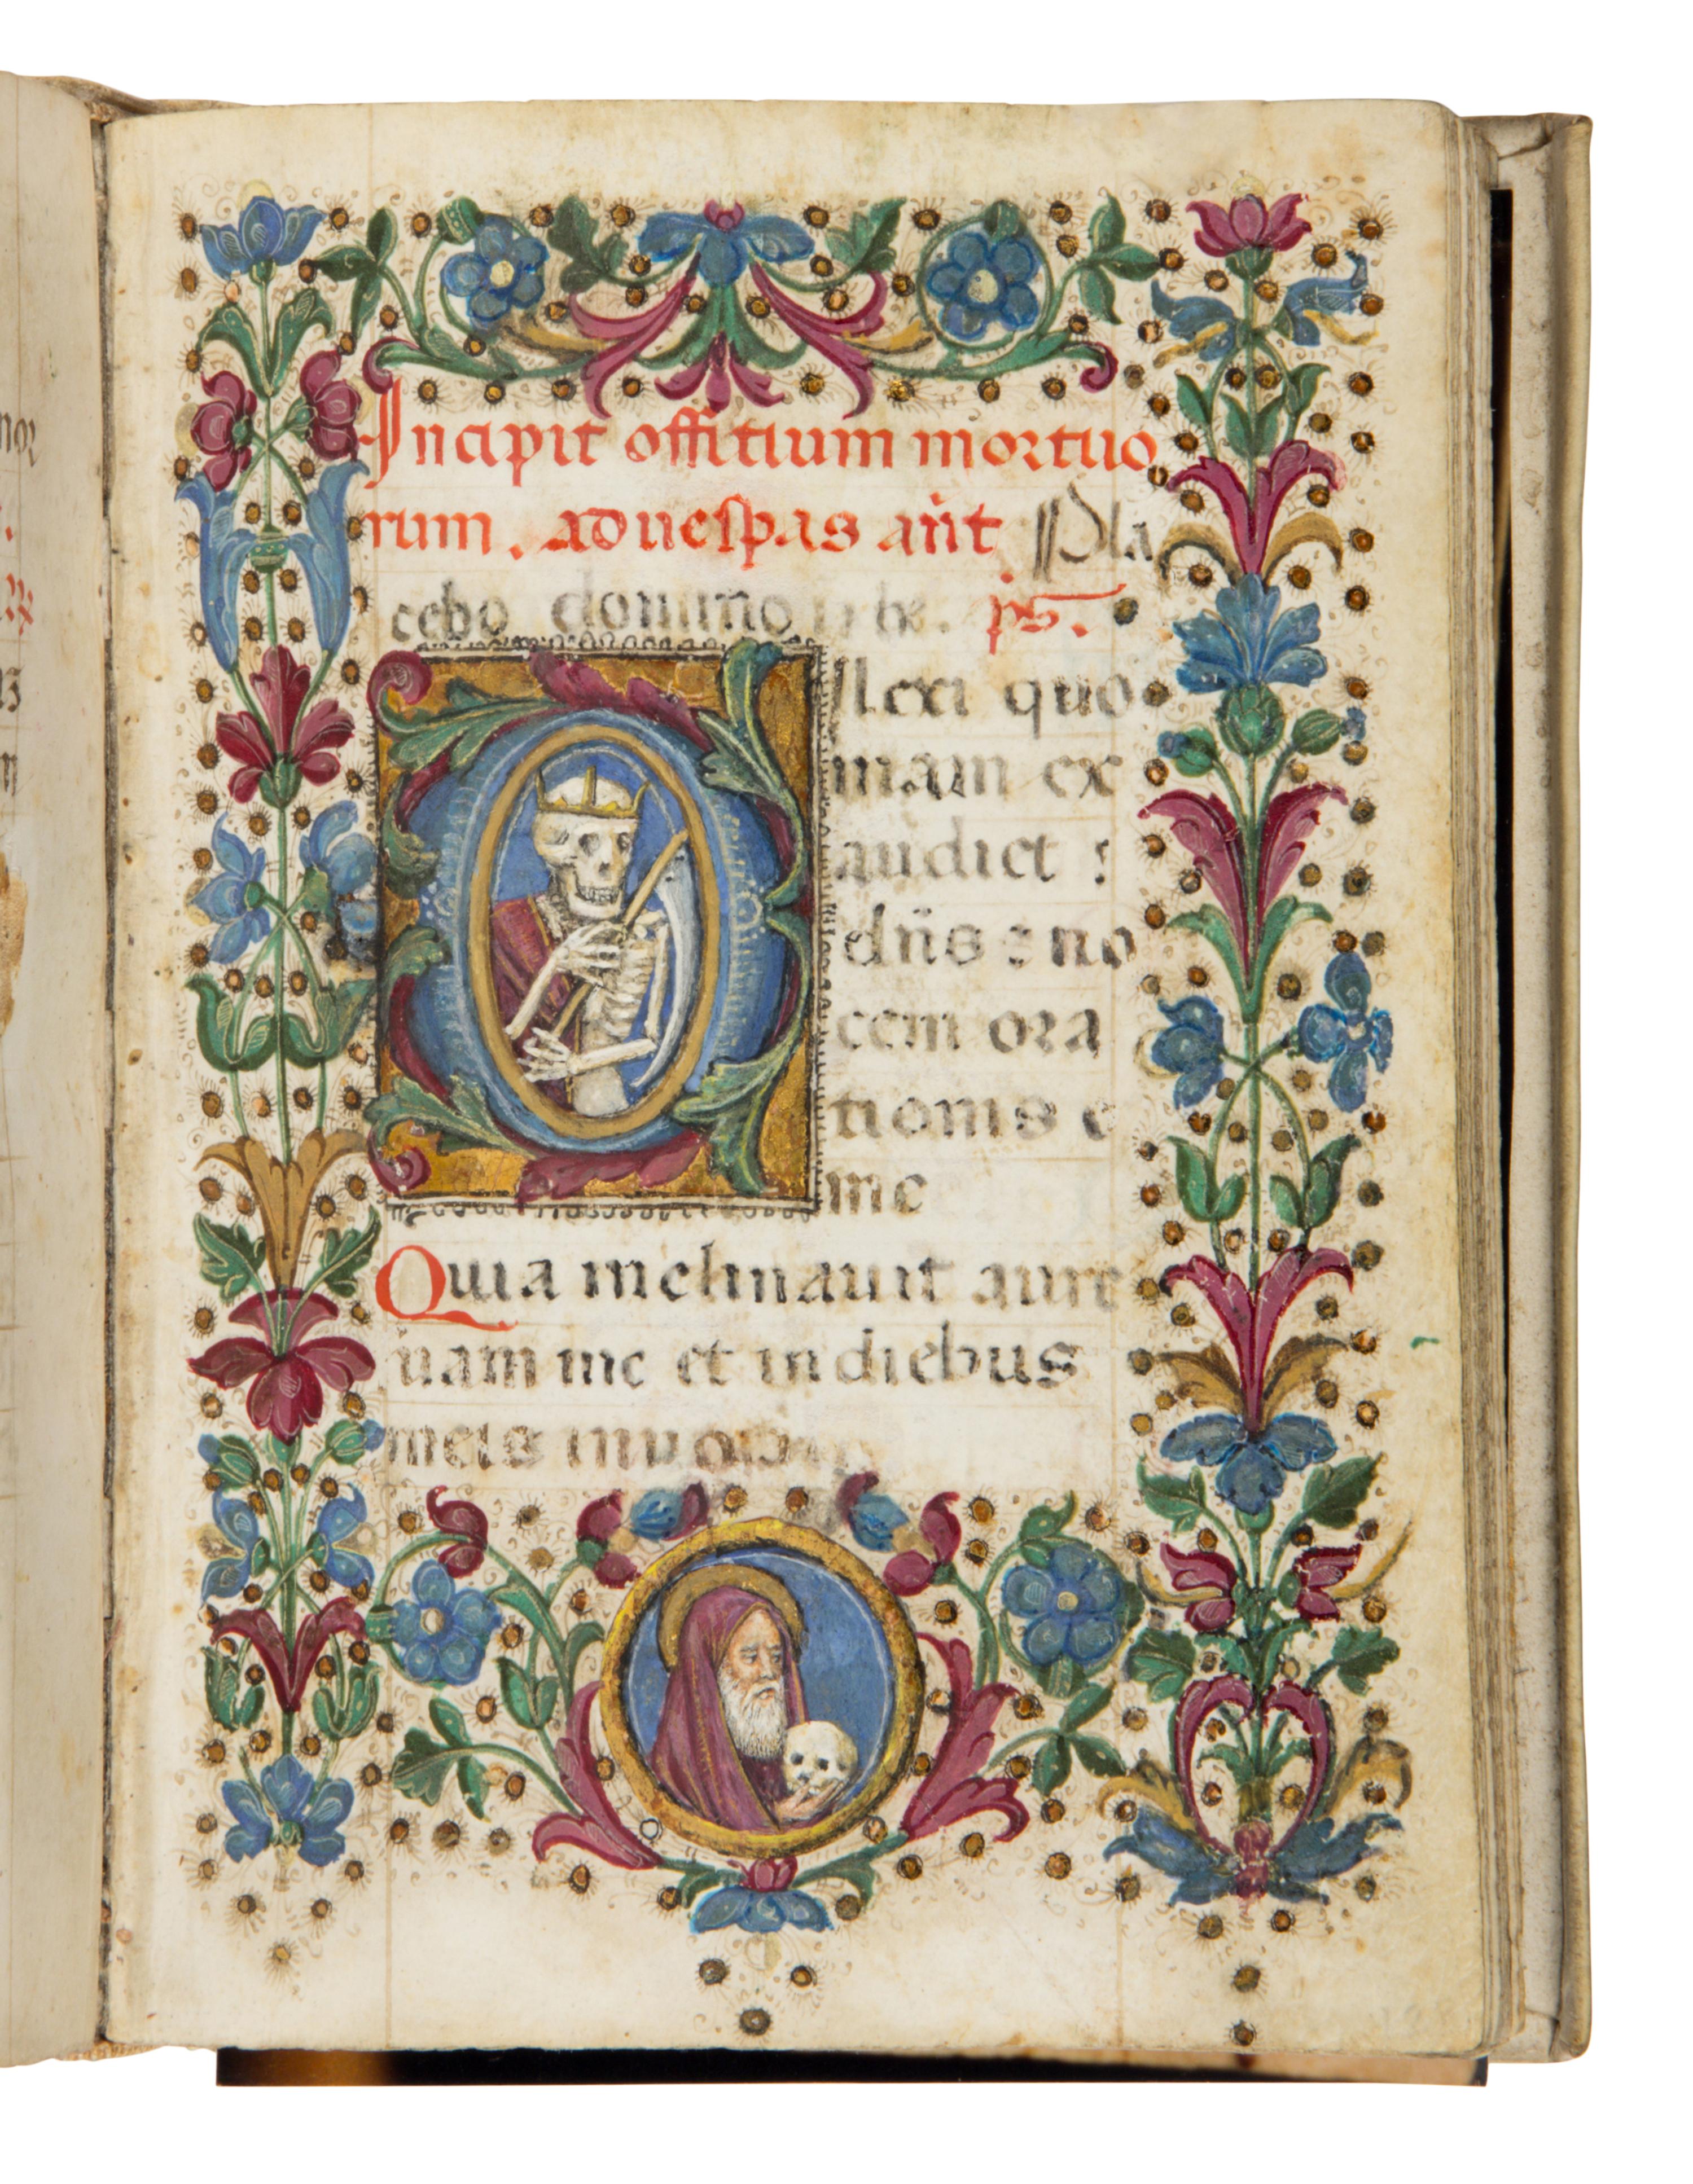 Incipit offitium mortuo
rum . ad vespas añt Pla
cebo domino ps.
Dilexi quo
niam ex
audiet :
dñs : vo
cem ora
tionis e
me
Quia inclinavit aure
suam mc et in diebus
meis invoca